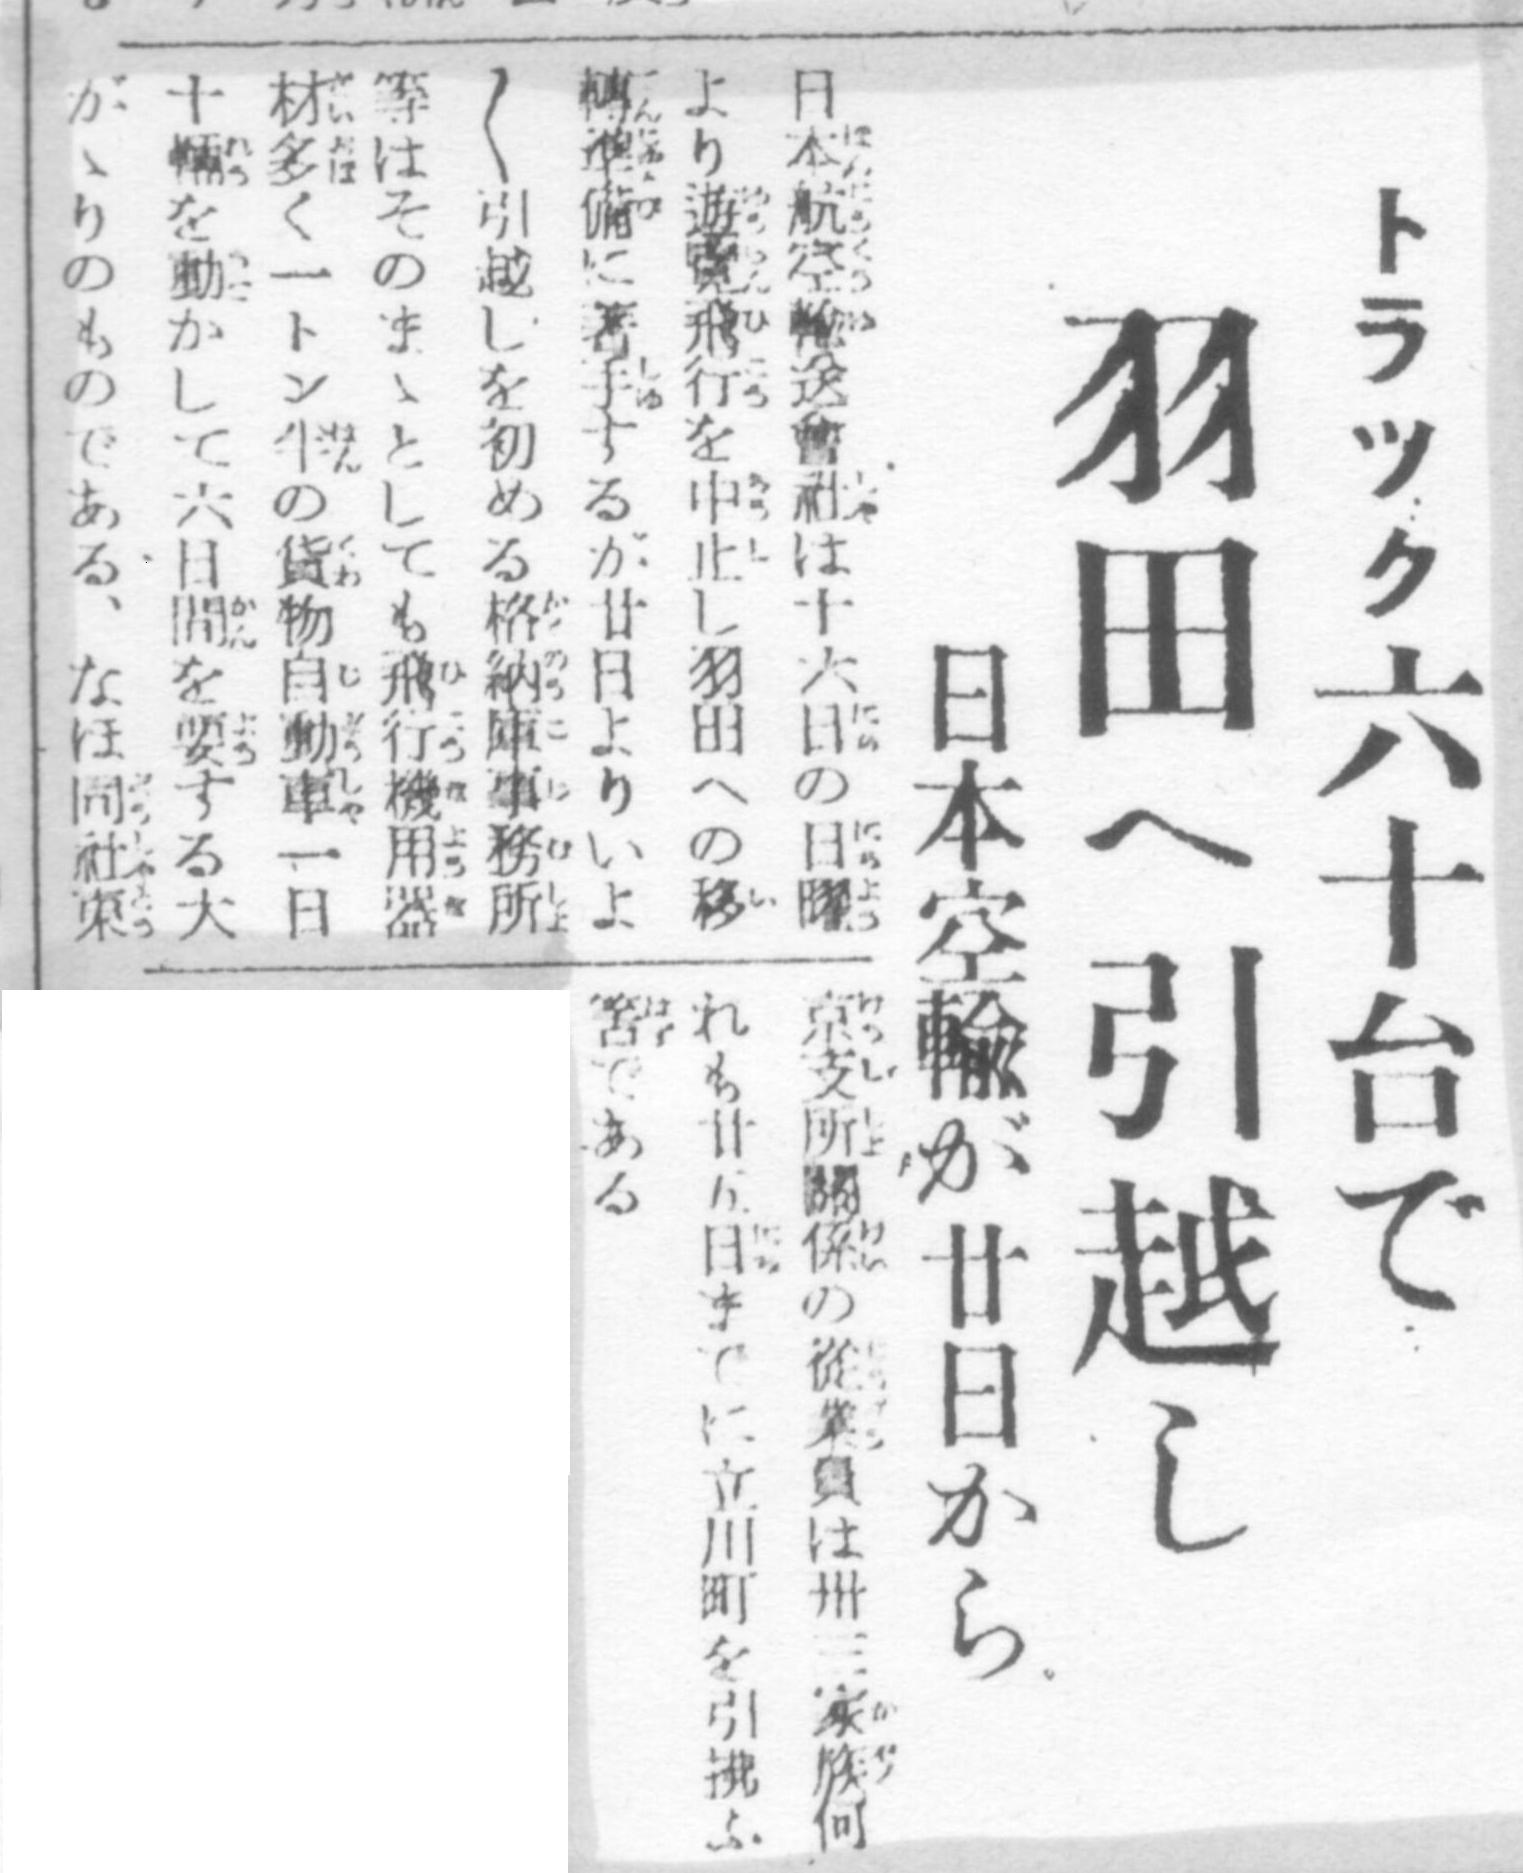 トラック六十台で
羽田へ引越し
日本空輸が廿日から
日本航空輸送會社は十六日の日曜
より遊覽飛行を中止し羽田への移
轉準備に著手するが廿日よりいよ
〱引越しを初める格納庫事務所
等はそのまゝとしても飛行機用器
材多く一トン半の貨物自動車一日
十輛を動かして六日間を要する大
がゝりのものである、なほ同社東
京支所關係の從業員は卅三家族何
れも廿五日までに立川町を引拂ふ
筈である